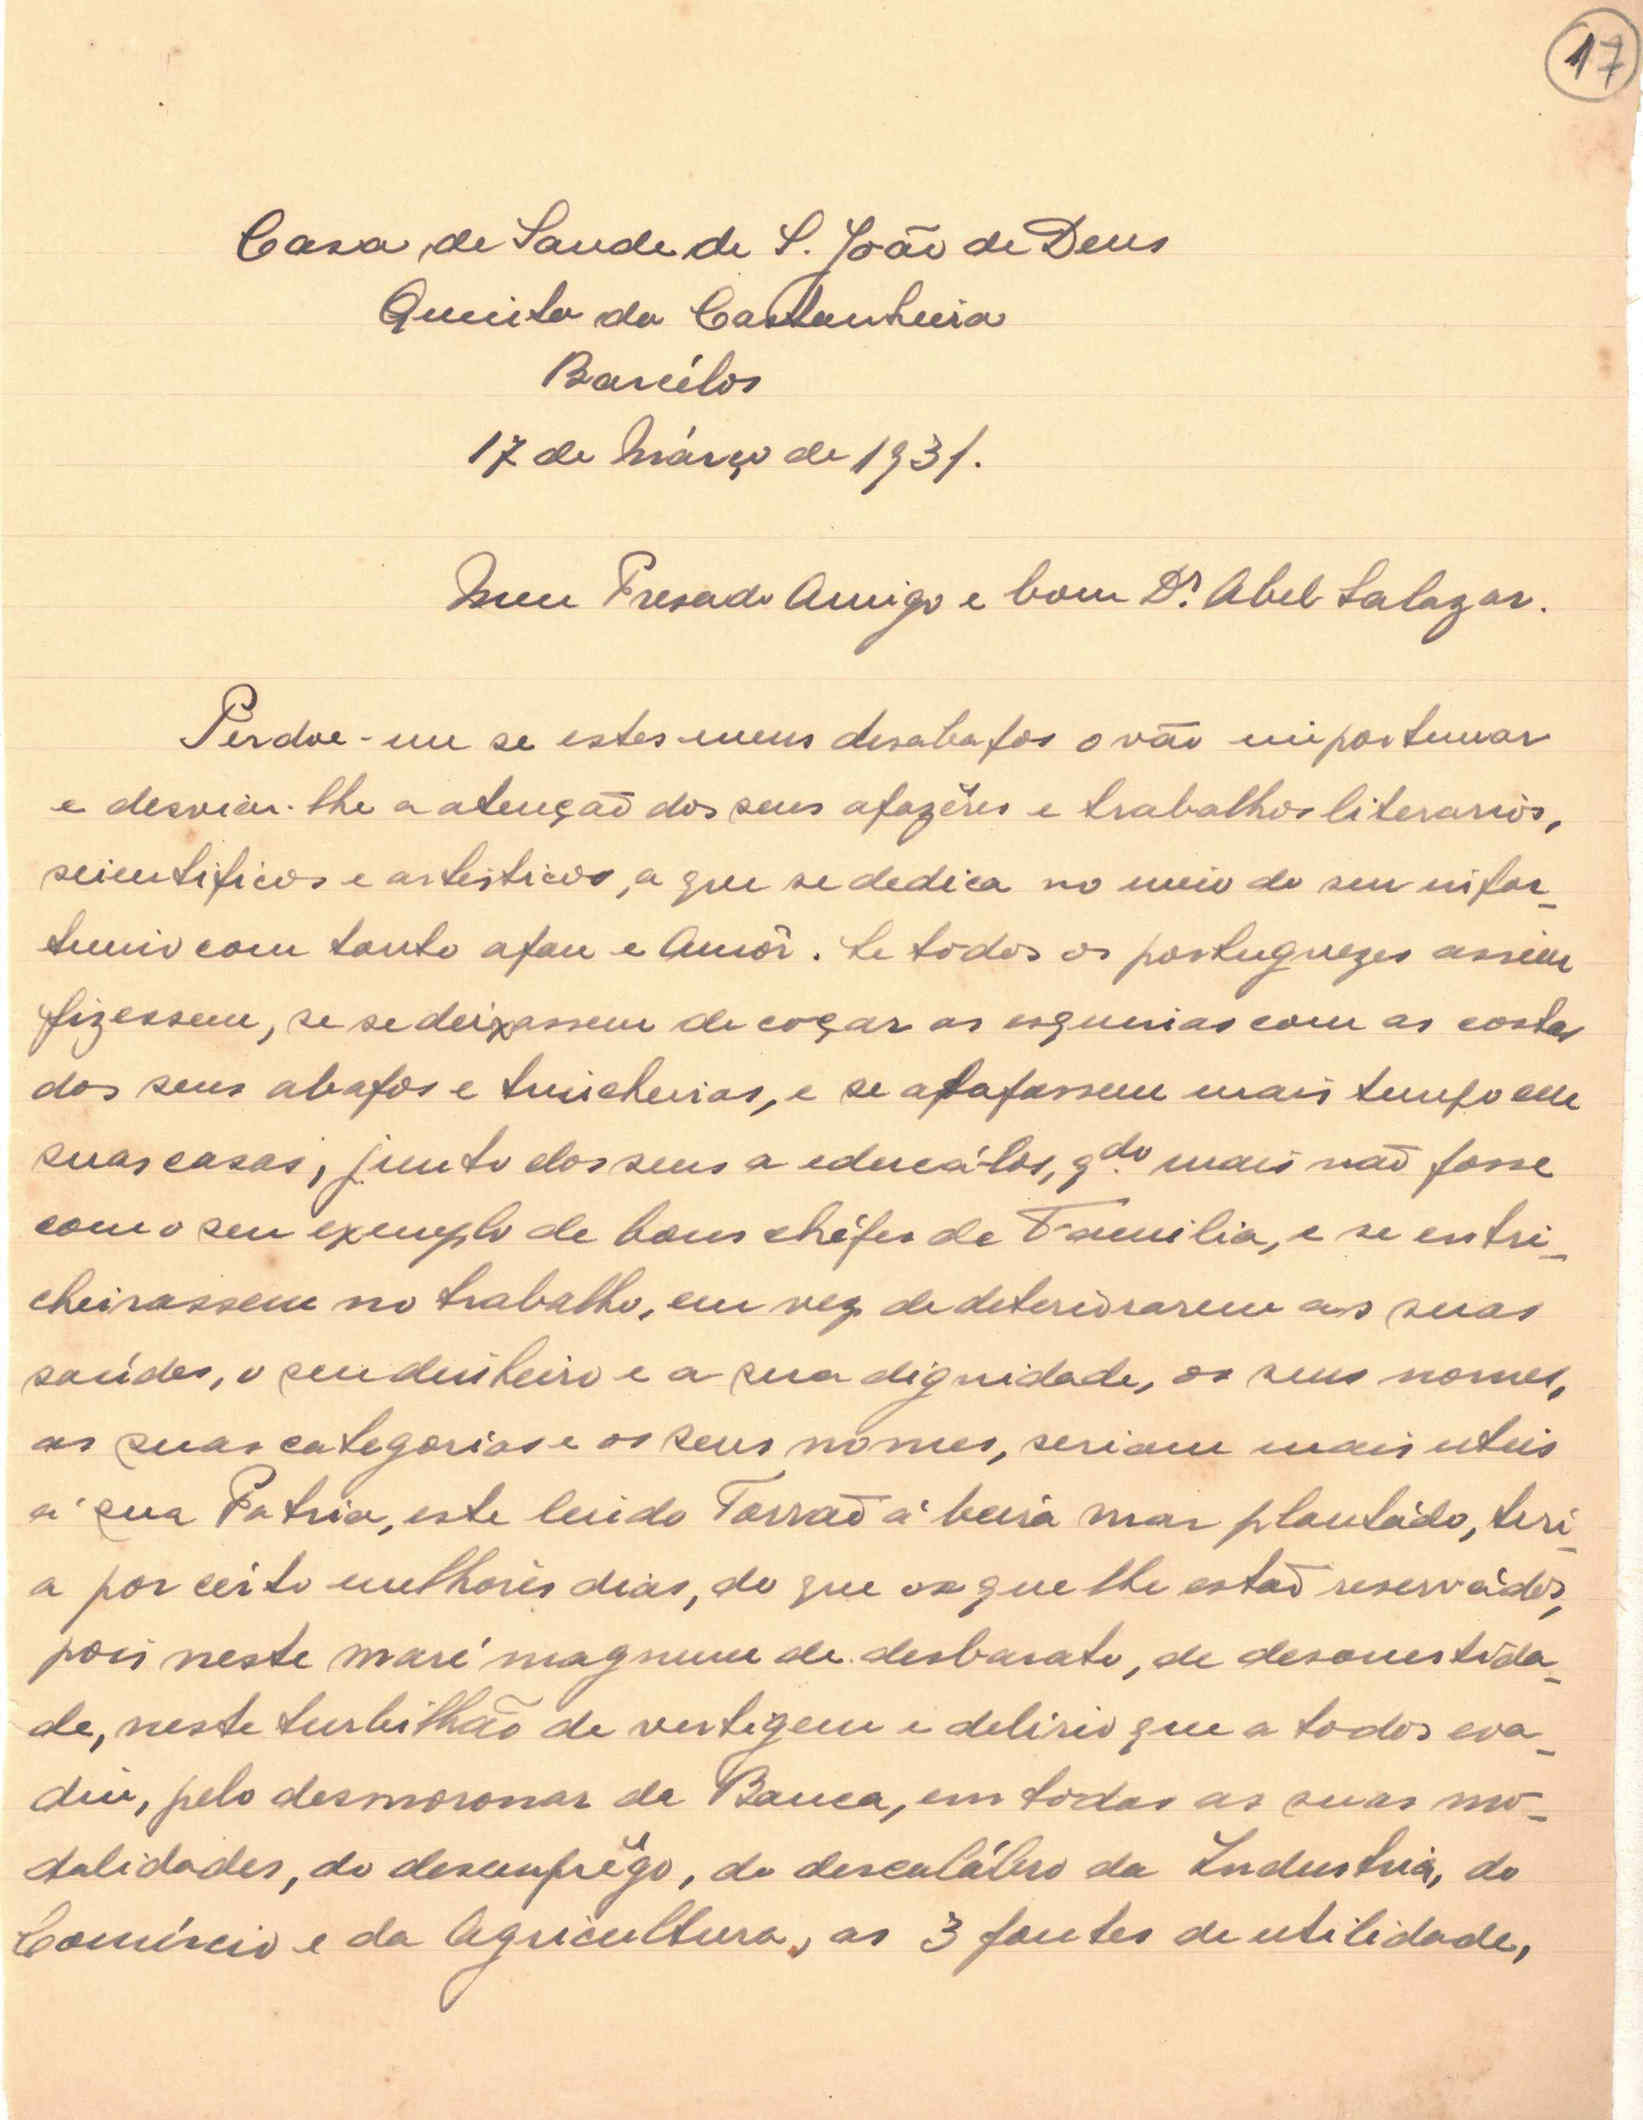 17
Casa de Saude de S. João de Deus
Quinta da Castanheira
Barcélos
17 de Março de 1931.
Meu Presado Amigo e bom Dr. Abel Salazar.
Perdoe-me se estes meus desabafos o vão importunar
e desviar-lhe a atenção dos seus afazêres e trabalhos literarios,
scientificos e artisticos, a que se dedica no meio do seu infor-
tunio com tanto afan e Amôr. Se todos os portuguezes assim
fizessem, se se deixassem de coçar as esquinas com as costas
dos seus abafos e trincheiras, e se mais tempo em
suas casas, junto dos seus a educá-los, qdo mais não fosse
com o seu exemplo de bons chéfes de Familia, e se entri-
cheirassem no trabalho, em vez de deteriorarem as suas
saúdes, o seu dinheiro e a sua dignidade, os seus nomes,
as suas categorias e os seus nomes, seriam mais uteis
á sua Patria, este lindo Torrão á beira mar plantádo, teri-
a por cérto melhores dias, do que os que lhe estão reservádos,
pois neste maré magnum de desbarato, de desonestida-
de, neste turbilhão de vertigem e delirio que a todos eva-
diu, pelo desmoronar da Banca, em todas as suas mo-
dalidades, do desemprêgo, do descalábro da Industria, do
Comércio e da Agricultura, as 3 fontes de utilidade,